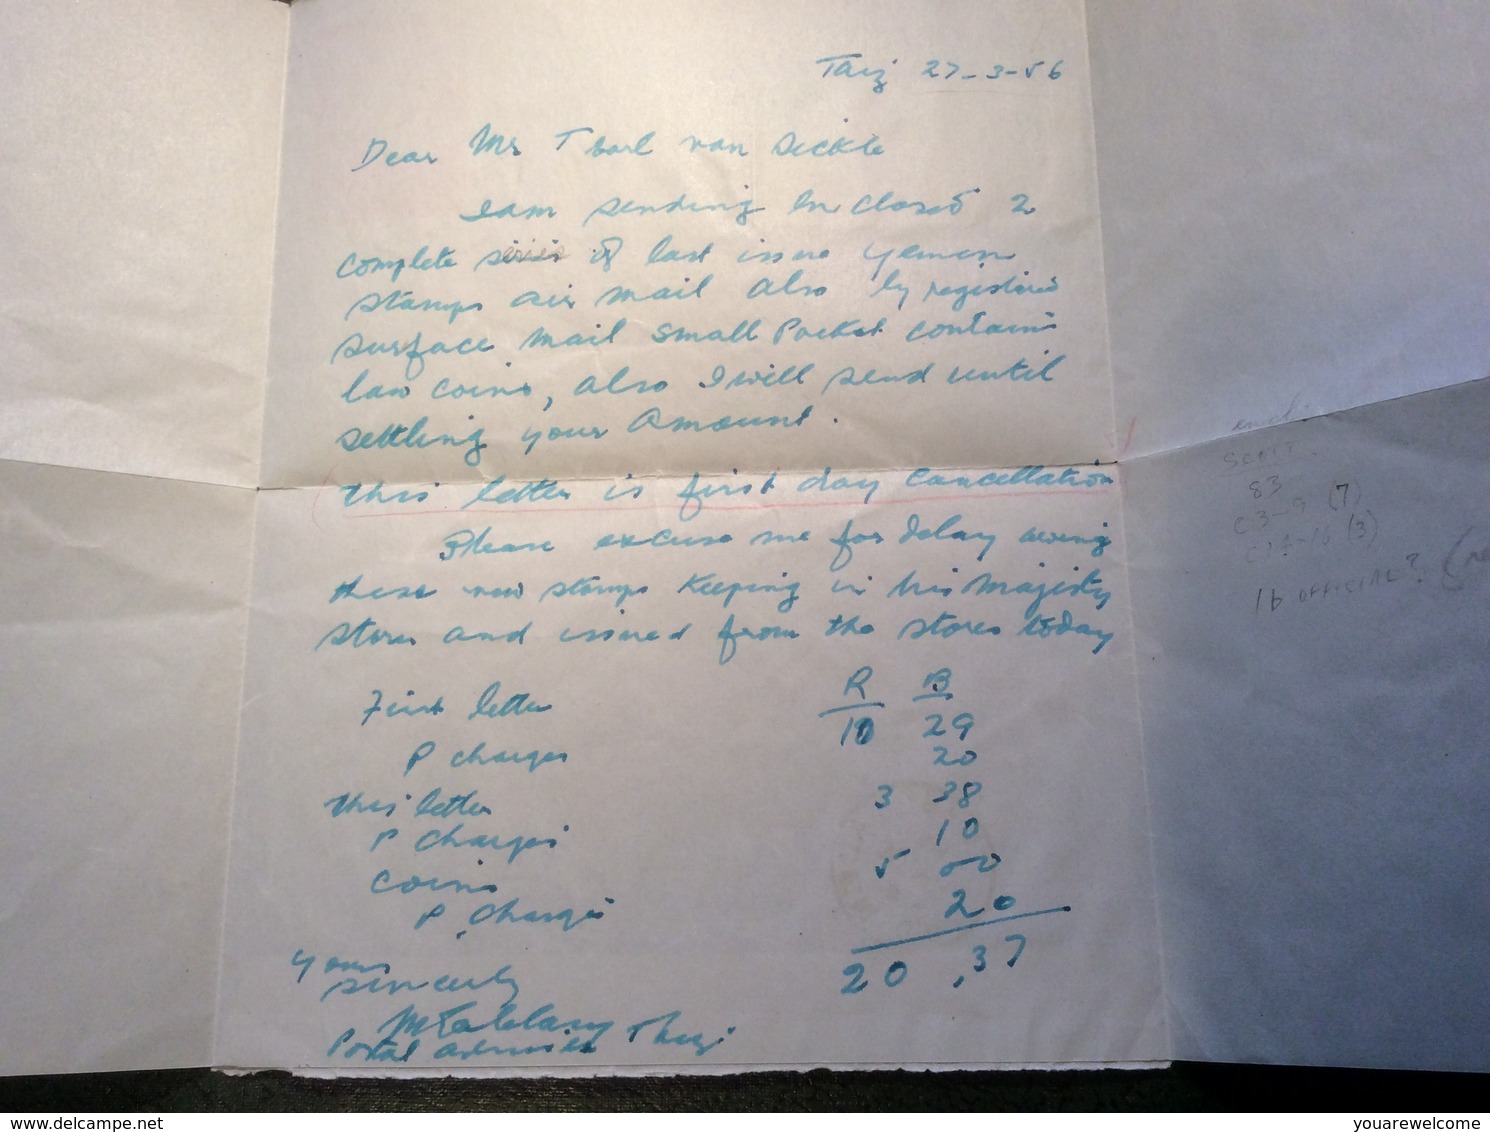 Taiz 27-3-56
Dear Mr T barl van Sickle
I am sending Inclosed 2
complete series of last issue Yemen
stamps air mail also by registered
surface mail small Packet contains
law coins, also I will send until
settling your Amount.
this letter is first day Cancellation
Please excuse me for delay owing
these new stamps Keeping in his Majesty
stores and issued from the stores today
R B
First letter 10 29
P charges 20
this letter 3 38
P charges 10
coins 5 00
P. Charges 20
20 .37
yours
sincerely
Postal adviser Thaiz
SCOTT
83
C3-9 (7)
C14-16 (3)
16 OFFICIAL?
delcampe.net
youarewelcome